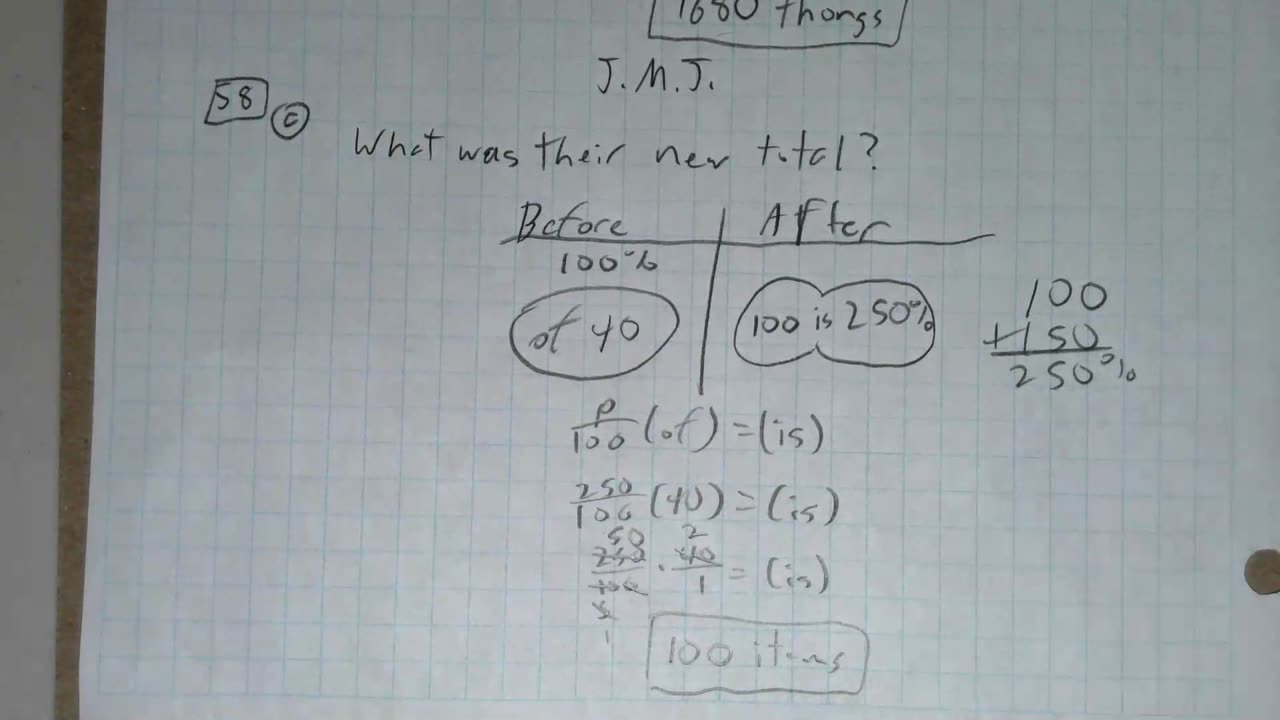 1680 thongs
J.M.J.
58 c
What was their new total?
Before After
100%
of 40 100 is 250%
100
+150
250%
p/100 (of) = (is)
250/100 (40) = (is)
50 2
250/100 · 40/1 = (is)
5
1
100 items